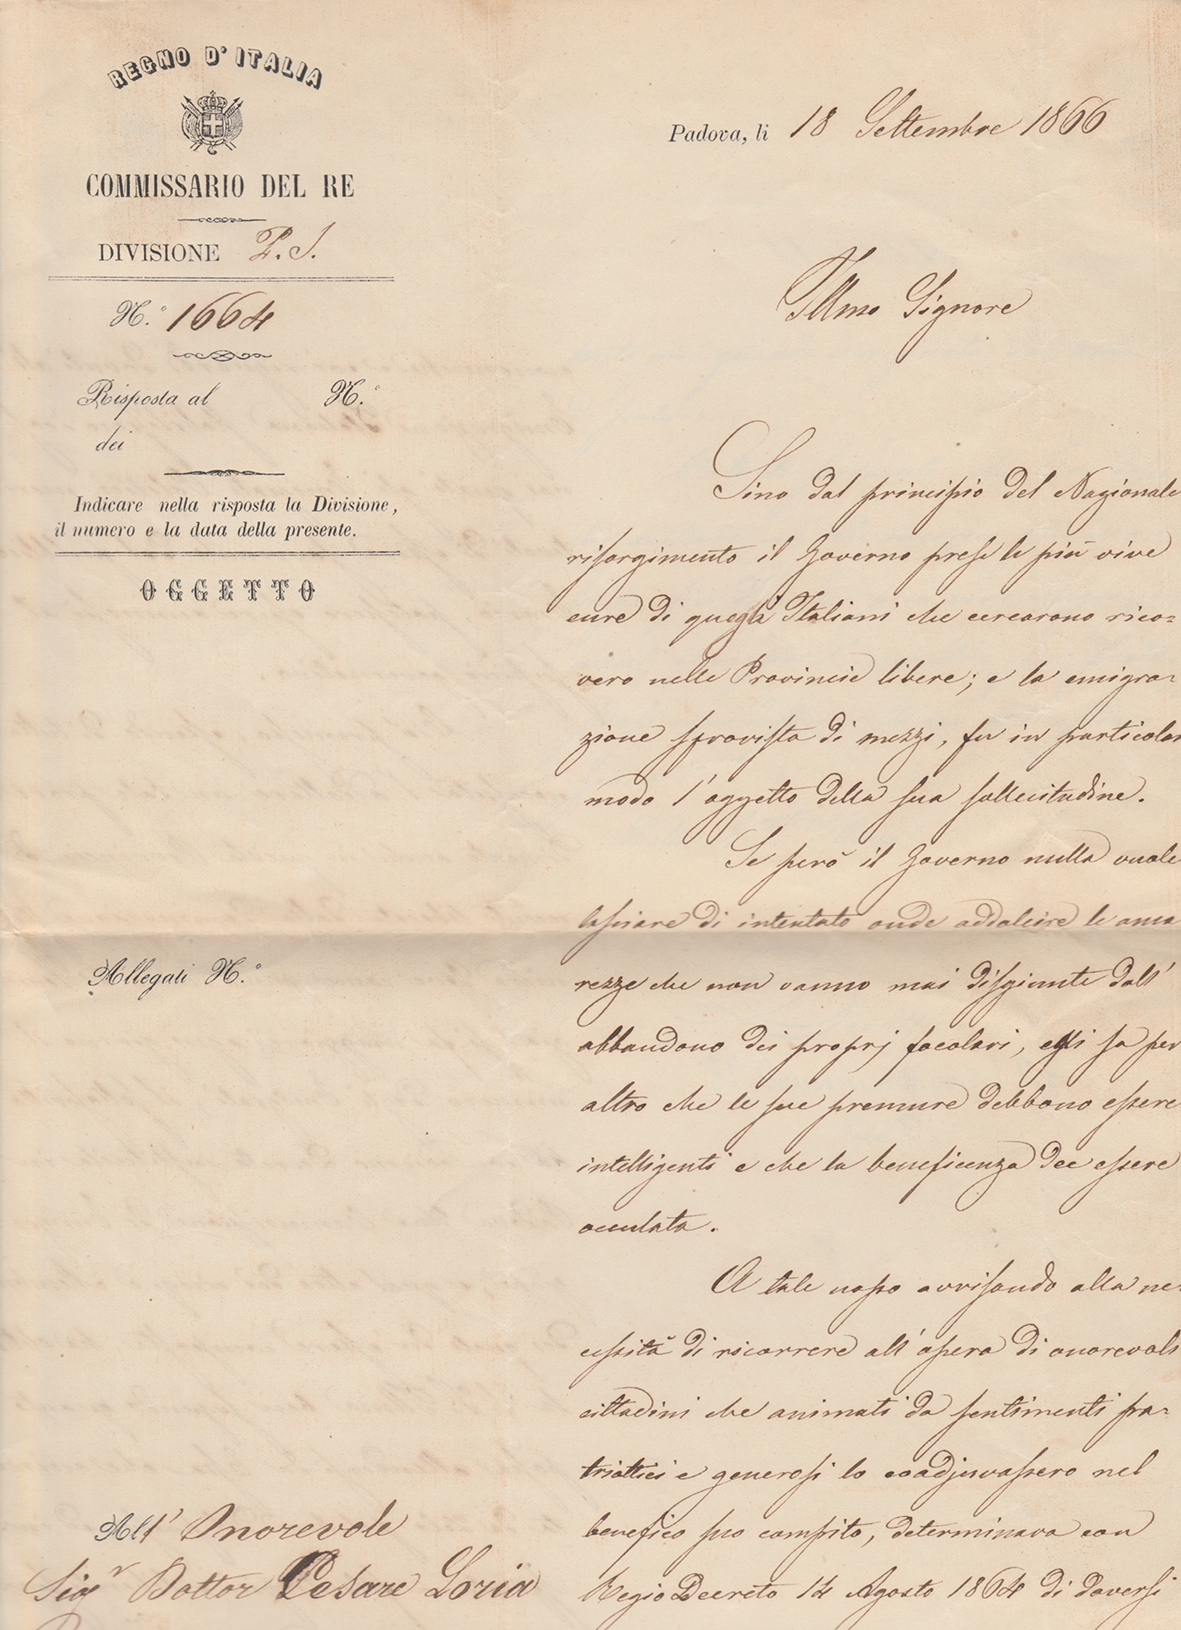 REGNO D'ITALIA
COMMISSARIO DEL RE
DIVISIONE P. S.
N.° 1664
Risposta al N.°
dei
Indicare nella risposta la Divisione,
il numero e la data della presente.
OGGETTO
Allegati N.°
All' Onorevole
Sigr Dottor Cesare Loria
Padova, li 18 Settembre 1866
Illmo Signore
Sino dal principio del Nazionale
risorgimento il Governo prese le più vive
cure di quegli Italiani che cercarono rico=
vero nelle Provincie libere; e la emigra=
zione sprovista di mezzi, fu in particolar
modo l'oggetto della sua sollecitudine.
Se però il Governo nulla vuole
lasciare di intentato onde addolcire le ama
rezze che non vanno mai disgiunte dall'
abbandono dei proprj focolari, egli sa per
altro che le sue premure debbono essere
intelligenti e che la beneficenza dee essere
oculata.
A tale uopo avvisando alla ne=
cessità di ricorrere all'opera di onorevoli
cittadini che animati da sentimenti pa=
triottici e generosi lo coadjuvassero nel
benefico suo compito, determinava con
Regio Decreto 14 Agosto 1864 di doversi